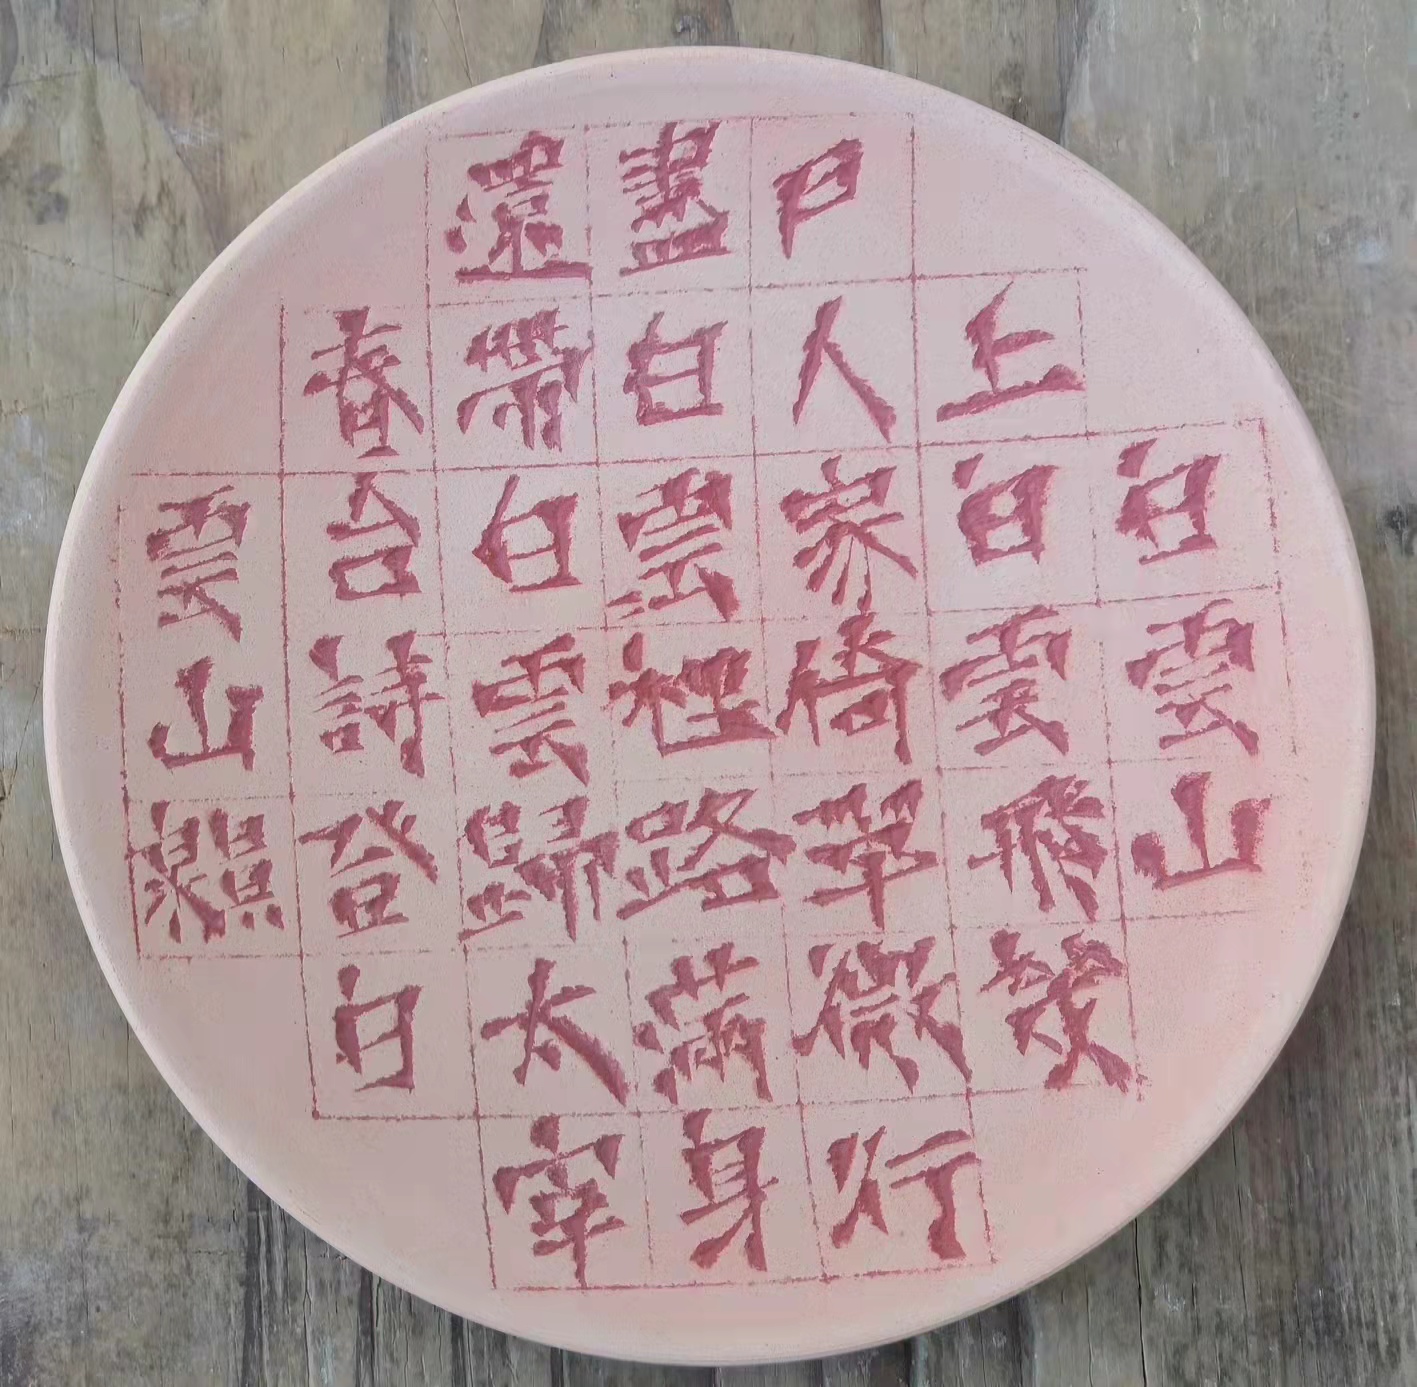 白雲山
上白雲飛幾
戶人家倚翠微行
盡白雲〻裡路滿身
還帶白雲歸太宰
春台詩登白
雲山